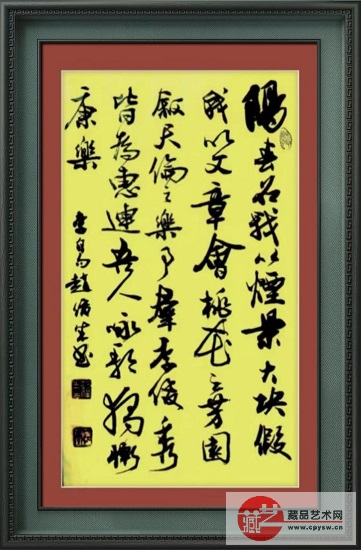 陽春召我以煙景大块假
我以文章會桃花之芳園
敘天倫之樂事群季俊秀
皆為惠連吾人咏歌獨慚
康樂
趙
藏品艺术网
www.cpysw.cn